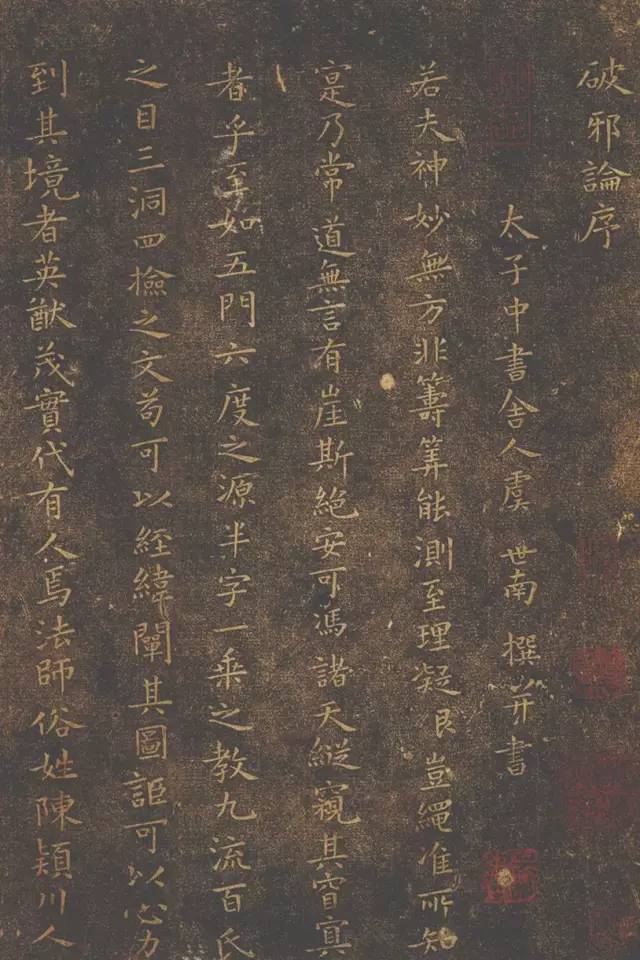 破邪論序
太子中書舍人虞世南撰并書
若夫神妙無方非籌筭能測至理凝㠯豈繩准所知
寔乃常道無言有崖斯絶安可馮諸天縱窺其窅寘
者乎至如五門六度之源半字一乘之教九流百氏
之目三洞四撿之文苟可以經緯闡其圖詎可以心力
到其境者英猷茂實代有人焉法師俗姓陳潁川人